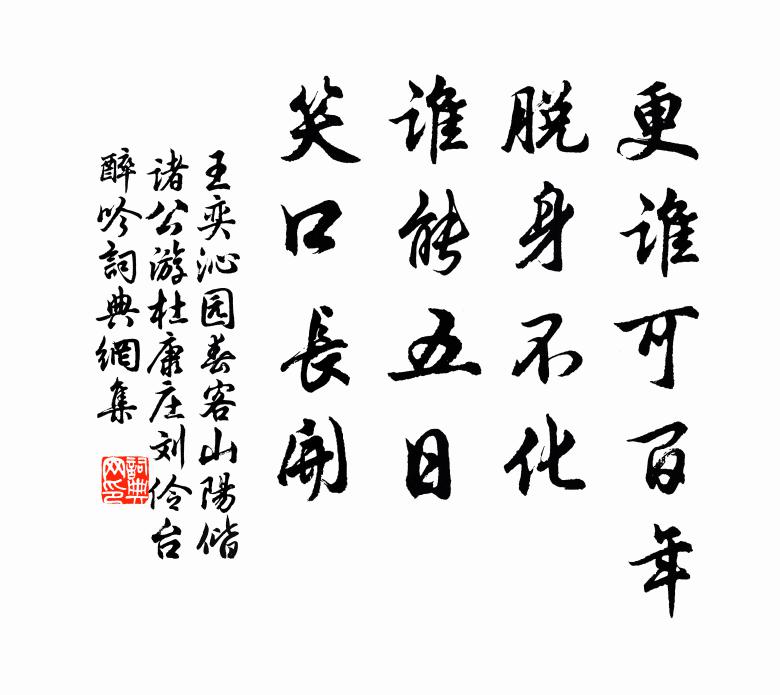 更谁可百年
脱身不化
谁能五日
笑口長開
王奕沁园春客山陽偕
诸公游杜康庄刘伶台
醉吟詞典網集
詞典
网印